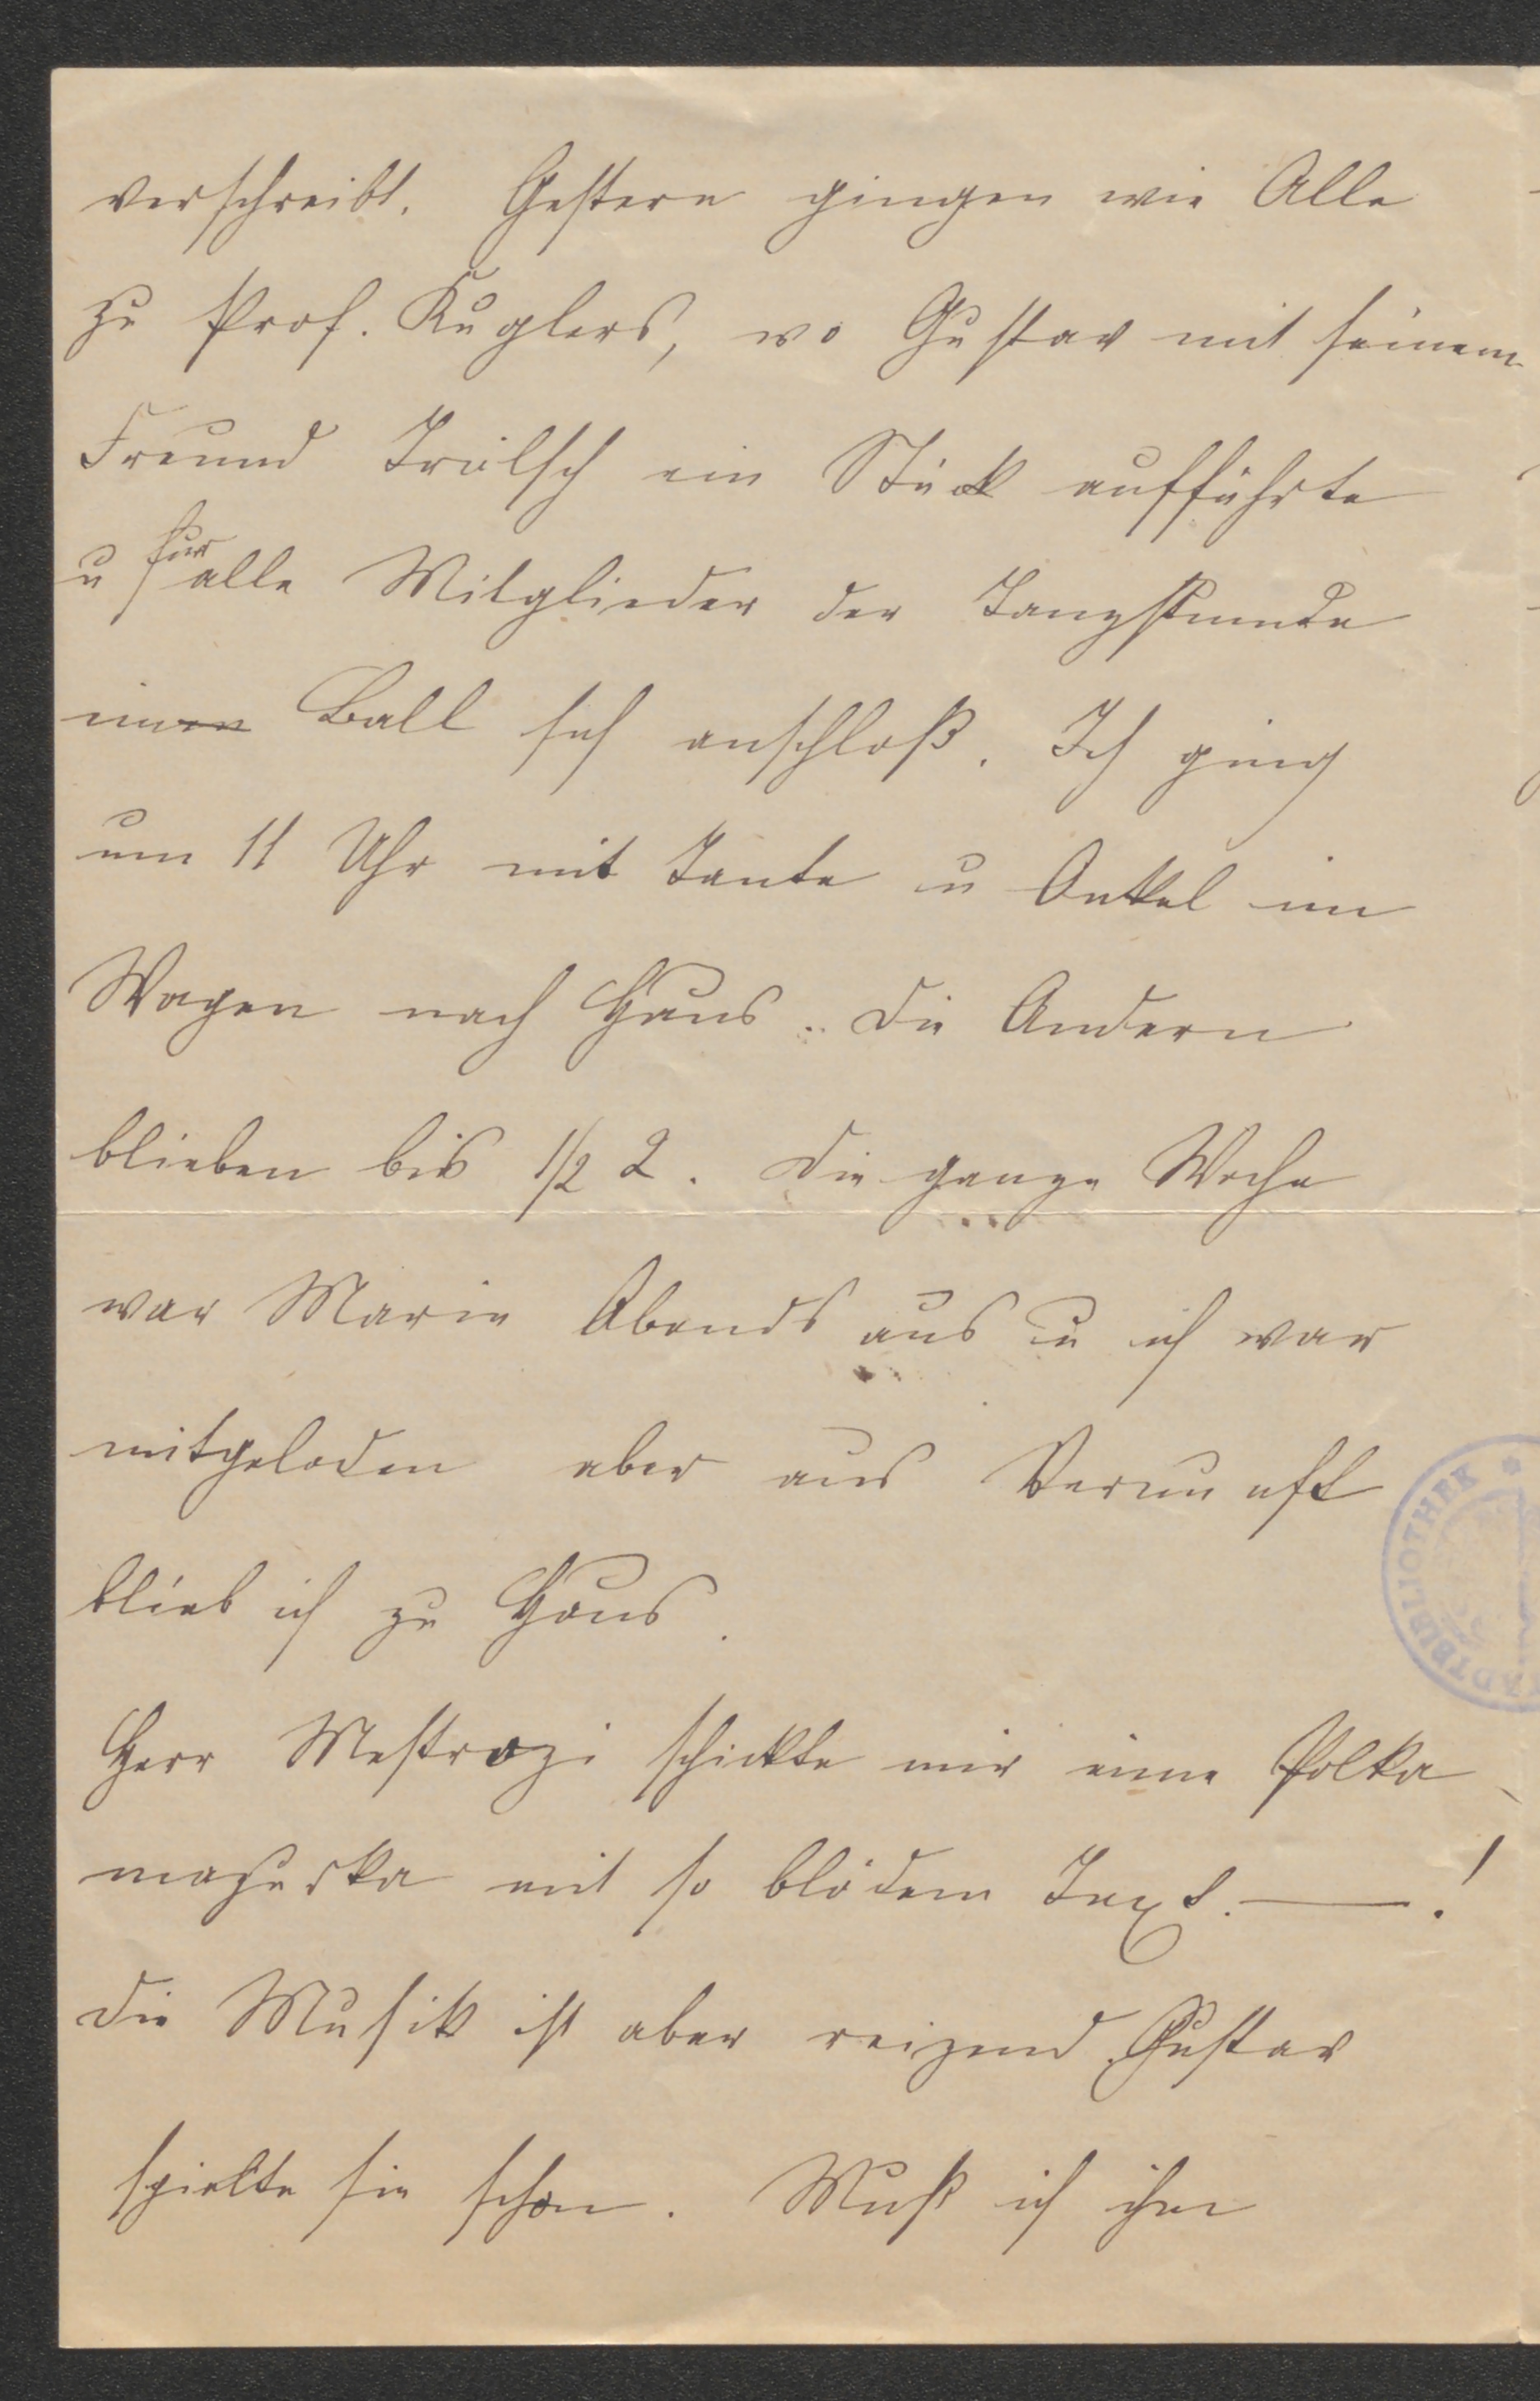 verschreibt. Gestern gingen wir Alle
zu Prof. Kuglers, wo Gustav mit seinem
Freund Trülsch ein Stück aufführte
u für alle Mitglieder der Tanzstunde
ein Ball sich anschloß. Ich ging
um 11 Uhr mit Tante u Onkel im
Wagen nach Haus. Die Andern
blieben bis 1/2 2. Die ganze Woche
war Marie Abends aus u ich war
mitgeladen aber aus Vernunft
blieb ich zu Haus.
Herr Mestrozi schickte mir eine Polka
mazurka mit so blödem Text. —!
Die Musik ist aber reizend. Gustav
spielte sie schon. Muß ich ihm
STADTBIBLIOTHEK